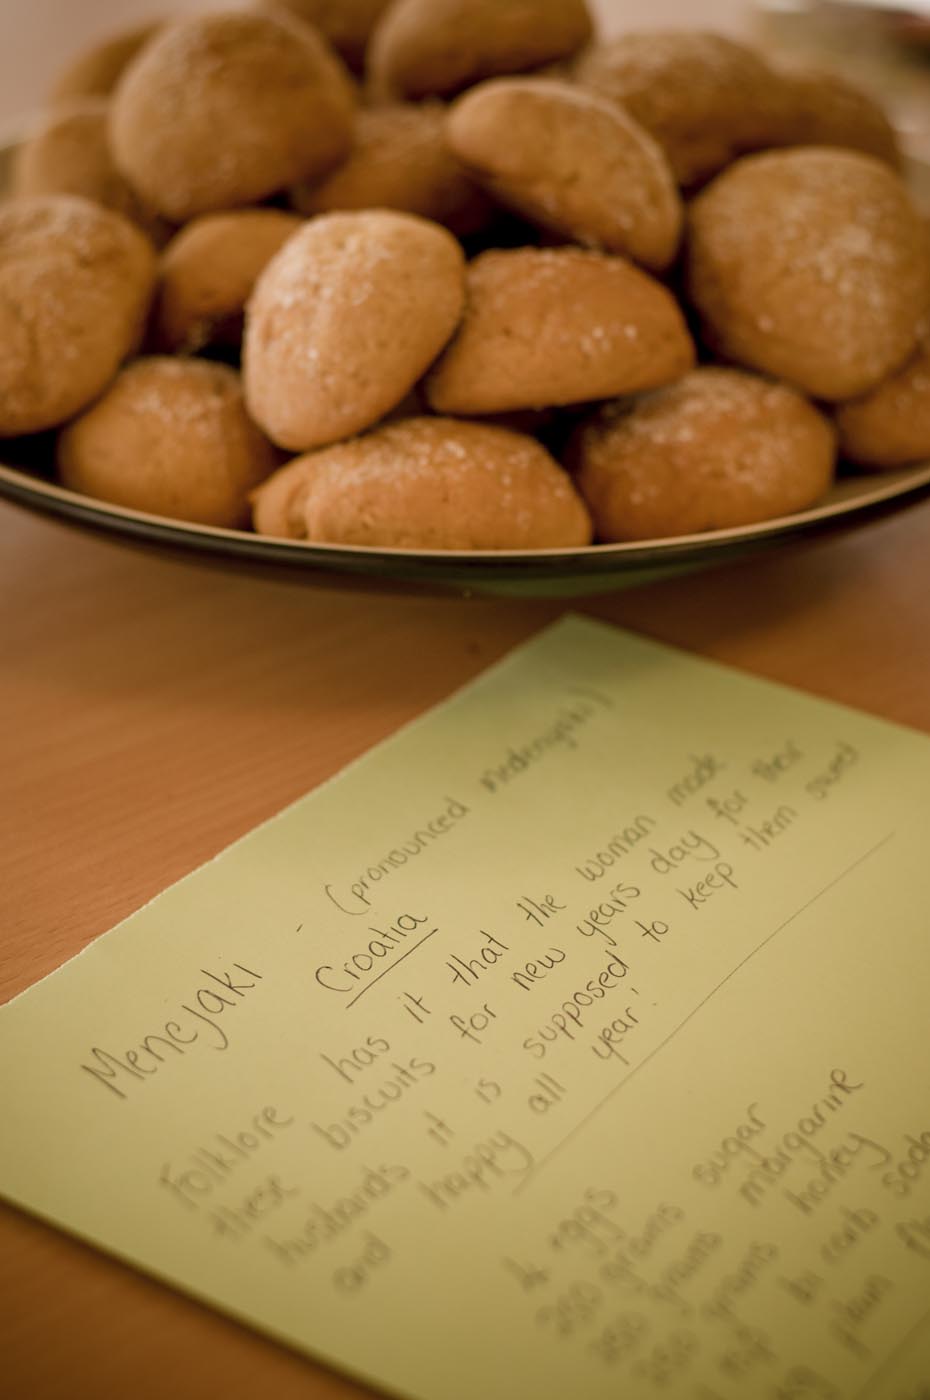 Mencjaki - (pronounced
Croatia
Folklore has it that the woman made
these biscuits for new years day for their
husbands it is supposed to keep them sweet
and happy all year!
4 eggs
250 grams sugar
250 grams margarine
250 grams honey
bi carb soda
plain